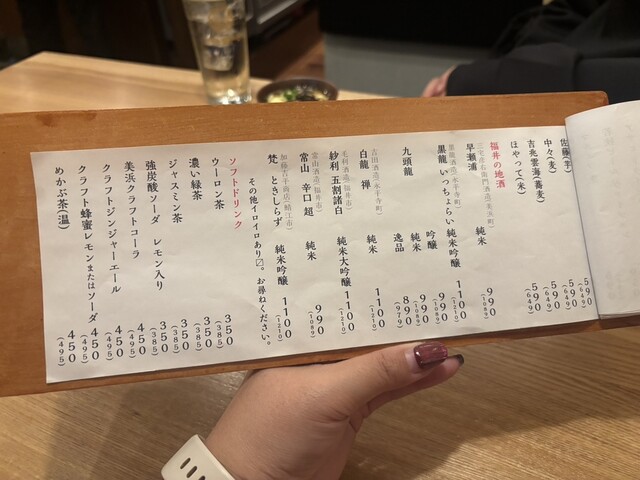 佐藤(芋) 590 (649)
中々(麦) 590 (649)
吉兆雲海(蕎麦) 590 (649)
ほやって(米) 590 (649)
福井の地酒
三宅彦右衛門酒造(美浜町)
早瀬浦 純米 990 (1089)
黒龍酒造(永平寺町)
黒龍 いっちょらい 純米吟醸 1100 (1210)
吟醸 990 (1089)
九頭龍 純米 990 (1089)
逸品 890 (979)
吉田酒造(永平寺町)
白龍 禅 純米 1100 (1210)
毛利酒造(福井市)
紗利 五割諸白 純米大吟醸 1100 (1210)
常山酒造(福井市)
常山 辛口超 純米 990 (1089)
加藤吉平商店(鯖江市)
梵 ときしらず 純米吟醸 1100 (1210)
その他イロイロあり〼。お尋ねください。
ソフトドリンク
ウーロン茶 350 (385)
濃い緑茶 350 (385)
ジャスミン茶 350 (385)
強炭酸ソーダ レモン入り 350 (385)
美浜クラフトコーラ 450 (495)
クラフトジンジャーエール 450 (495)
クラフト蜂蜜レモンまたはソーダ 450 (495)
めかぶ茶(温) 450 (495)